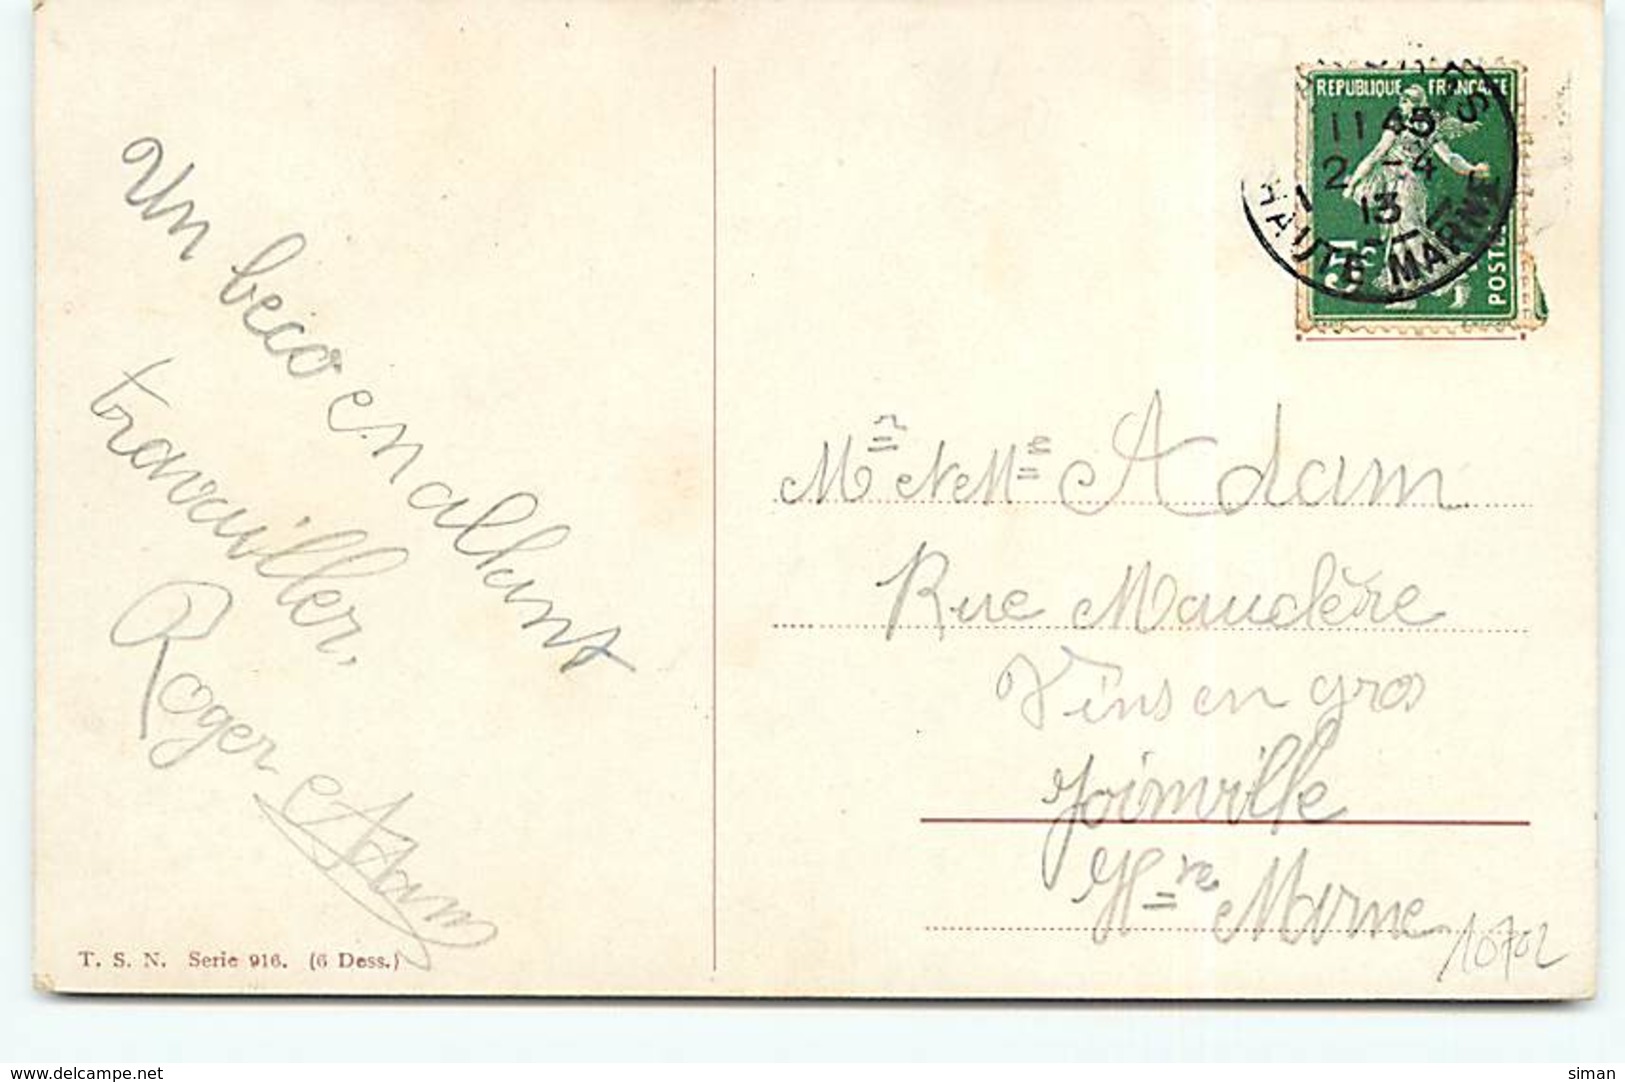 Un beco en allant
travailler,
Roger Adam
T. S. N. Serie 916. (6 Dess.)
REPUBLIQUE FRANCAISE
11 45
2 -4
13
HAUTE MARNE
5c
POSTES
Mr et Me Adam
Rue Maudère
Vins en gros
Joinville
Hre Marne
10702
www.delcampe.net
siman